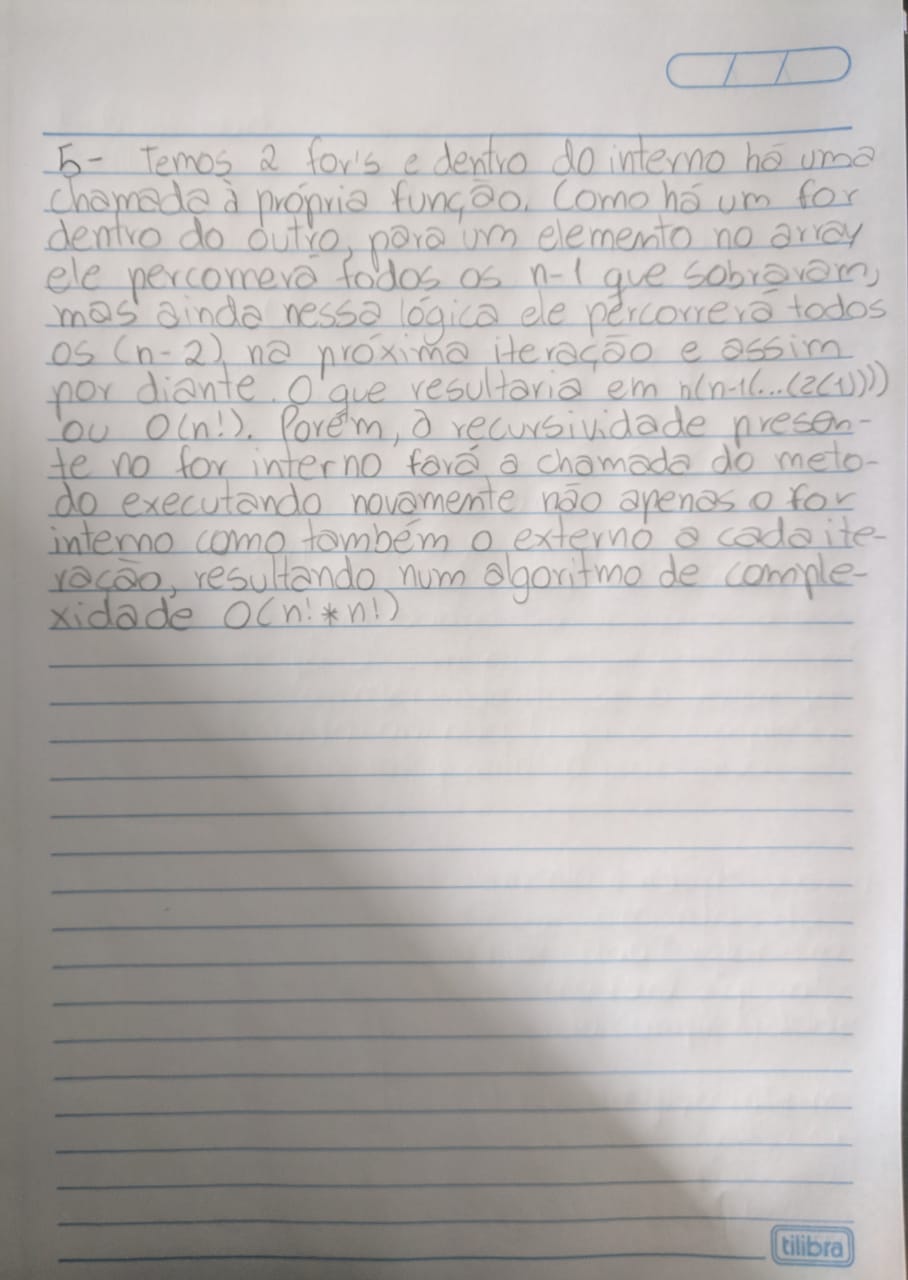 5- Temos 2 for's e dentro do interno há uma
chamada à própria função. Como há um for
dentro do outro, para um elemento no array
ele percorrerá todos os n-1 que sobraram,
mas ainda nessa lógica ele percorrerá todos
os (n-2) na próxima iteração e assim
por diante. O que resultaria em n(n-1(...(2(1))))
ou O(n!). Porém, a recursividade presen-
te no for interno fará a chamada do meto-
do executando novamente não apenas o for
interno como também o externo a cada ite-
ração, resultando num algoritmo de comple-
xidade O(n!*n!)
tilibra